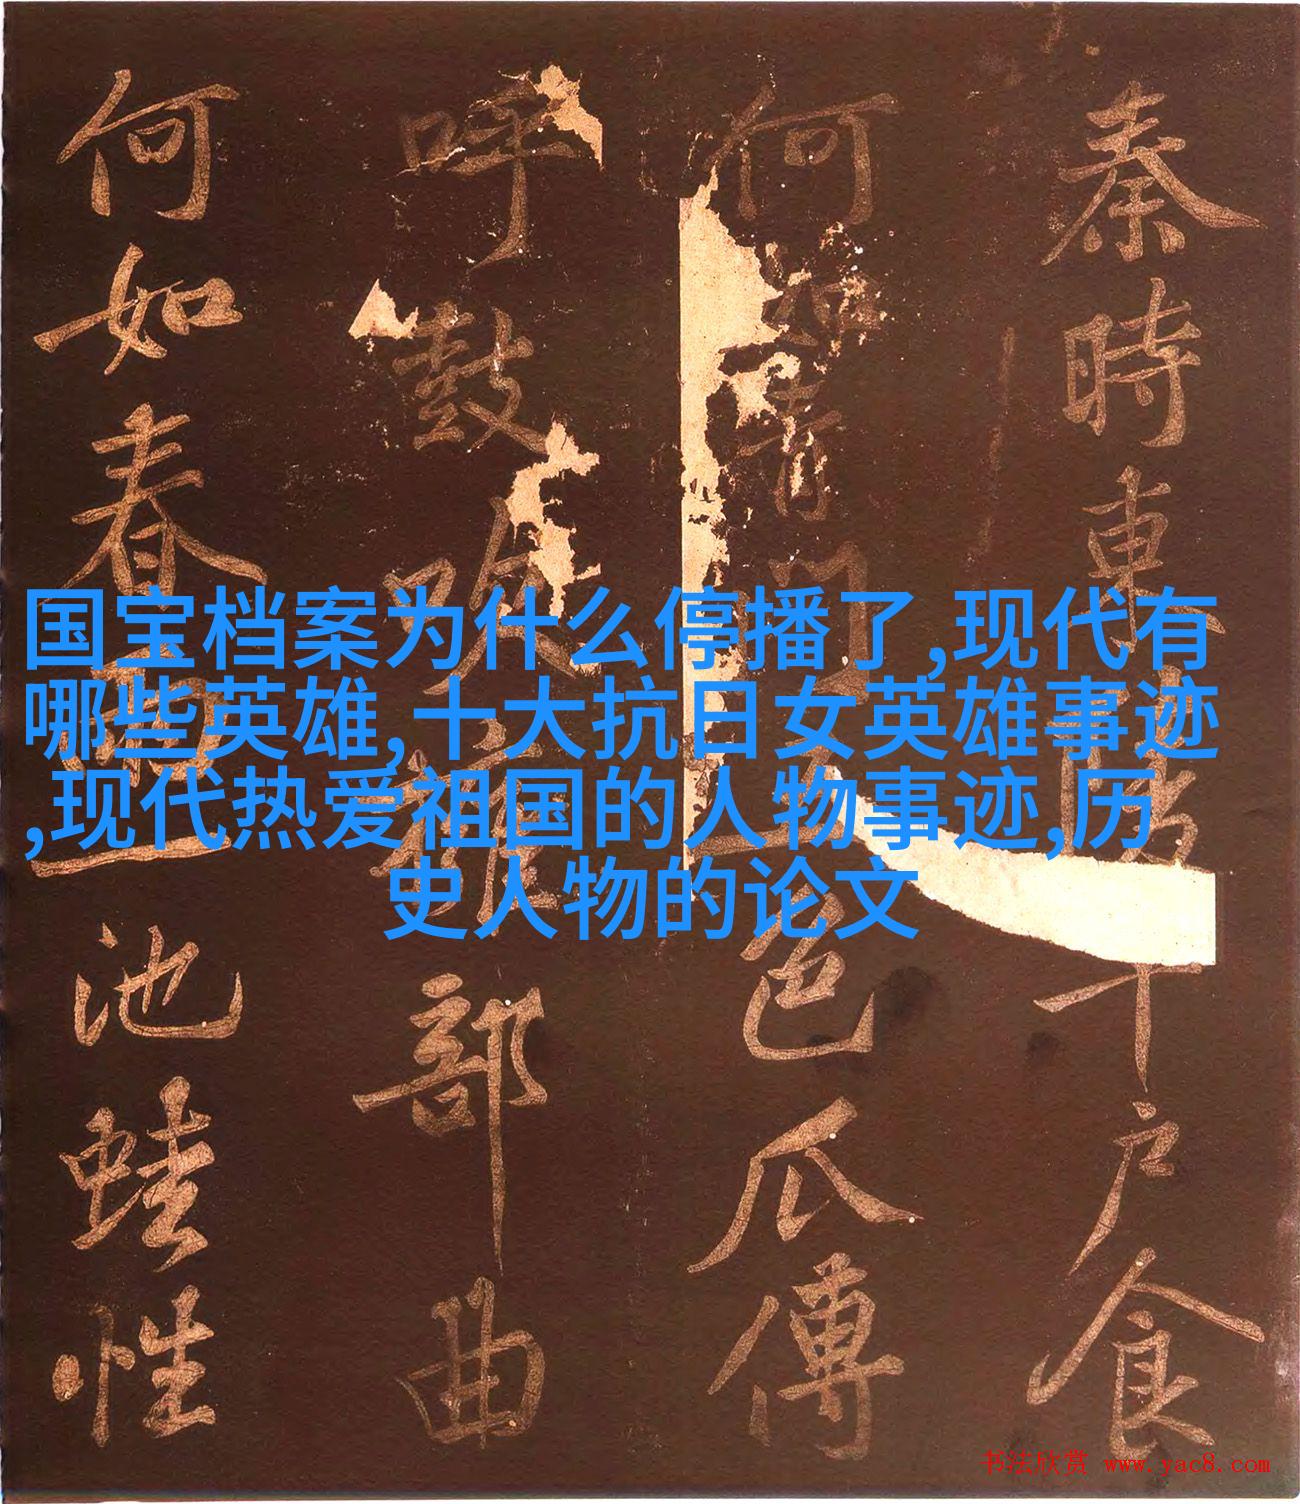 秦時東千戶食
何如青門色瓜傅
呼鼓吹部曲
何如春一池蛙性
国宝档案为什么停播了,现代有
哪些英雄,十大抗日女英雄事迹
,现代热爱祖国的人物事迹,历
史人物的论文
书法欣赏 www.yac8.com